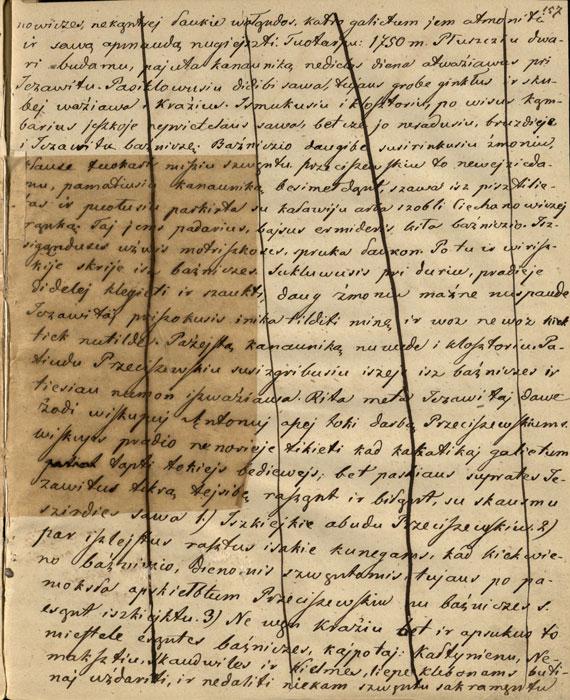 157
nowiczes, nekąntsej daukie wałąndos, katra galietum jem atmoniti
ir sawą apmaudą nugiejszti. Tuotarpu: 1750 m. Pluszcziu dwa-
ri budamu, pajuta kanauniką nedielos diena atważiawus pri
Jezawitu. Pasiklowusiu didibi sawa, tujaus grobe ginklus ir sku-
bej ważiawa i Krażius. Ismukusiu i klosztoriu, po wisus kąm-
barius jeszkoje neprieteliaus sawa, bet cze jo neradusiu, bruzdieje
i Jezawitu bażniczę. Bażniczio daugibe susirinkusiu żmoniu,
klause tuokart misziu szwąntu. Przeciszewskiu to newejzieda-
mi, pamatiusiu kanauniką besimeldąnt, szawa isz pisztalie-
tas ir puotusiu parkirta su kalawiju arba szobli Ciechanowiczej
ranką. Taj jems padarius, bajsus ermideris kila bażniczio. Isz-
sigąnduses wżwis motriszkoses, spruka laukon. Po tu ir wirisz-
kije skrije isz bażniczes. Sukluwusis pri duriu, pradieje
didelej klegieti ir szaukti, daug żmoniu mażne nuspaude
Jezawitaj priszokusis inika tilditi minę ir woz ne woz
tiek nutilde. Pażejstą kanauniką nuwede i klosztoriu. Pa-
tiudu Przeciszewskiu susizgribusiu iszeje isz bażniczes ir
tiesiau numon iszważiawa. Rita meta Jezawitaj dawe
żodi wiskupuj Antonuj apej toki darbą Przeciszewskiums.
wiskups pradio nenorieje tikieti kad katalikaj galietum
tapti tokiejs bediewejs; bet paskiaus suprates Je-
zawitus tikrą tejsibę raszant ir bilant, su skausmu
szirdies sawa 1.) Iszkiejkie abudu Przeciszewskiu. 2)
par iszlejstus rasztus iszkie kunegams, kad kiekwie-
no bażniczio, dienomis szwąntomis, tujaus po pa-
mokslo apskielbtum Przeciszewskiu nu bażniczes s.
esąnt iszkiejktu. 3) Ne wąn Krażiu bet ir apsukuo to
miestele esąntes bażniczes, kajpotaj: Kałtynienu, Ne-
moksztiu, Skaudwiles ir Kielmes, liepe klebonams buti-
naj użdariti, ir nedaliti niekam szwąntu sakramąntu